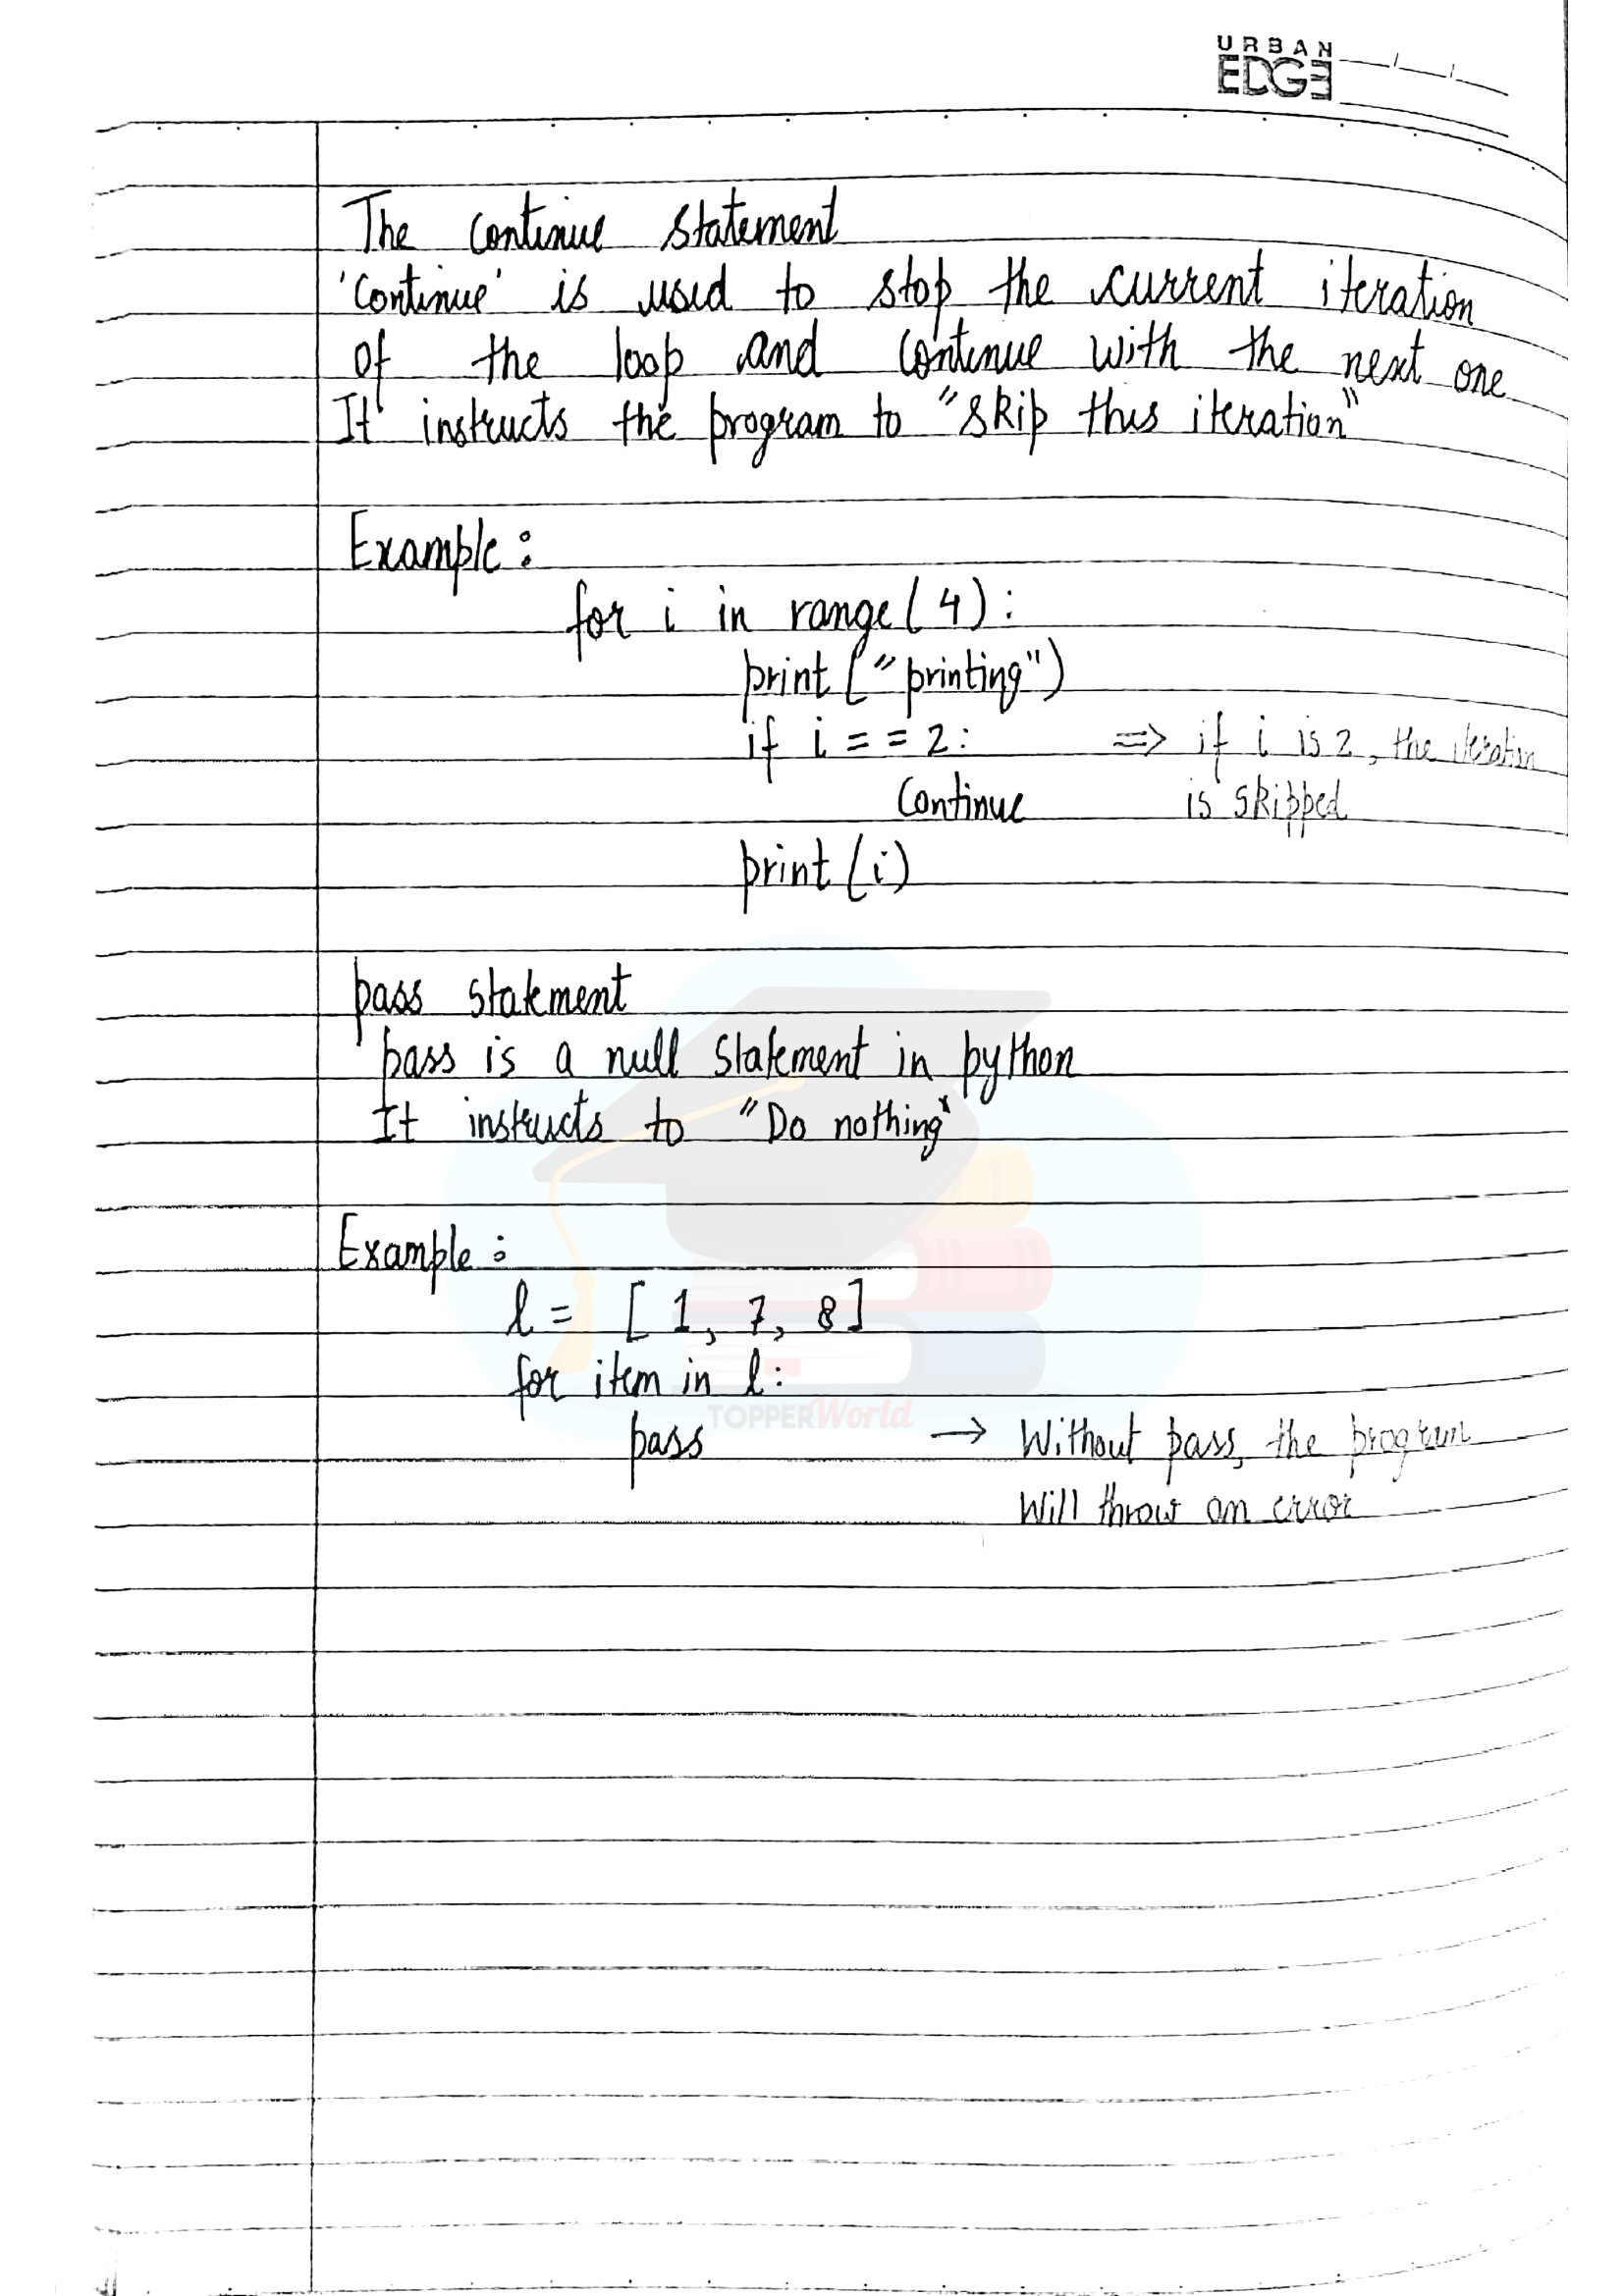 URBAN
EDGE
The Continue Statement
'Continue' is used to stop the current iteration
of the loop and continue with the next one
It instructs the program to "Skip this iteration"
Example:
for i in range(4):
print("printing")
if i == 2: => if i is 2, the iteration
Continue is skipped
print(i)
pass statement
pass is a null statement in python
It instructs to "Do nothing"
Example:
l = [1, 7, 8]
for item in l:
TOPPERWorld
pass → Without pass, the program
Will throw an error